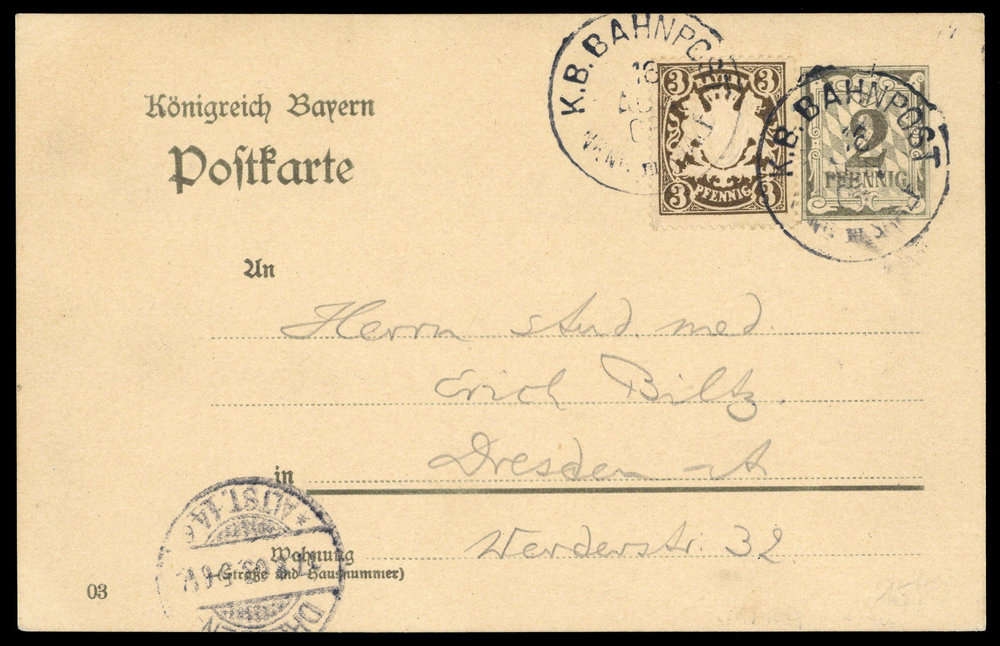 K.B.BAHNPOST
16
AUG
3 3
3 PFENNIG 3
K.B.BAHNPOST
16
2
PFENNIG
Königreich Bayern
Poſtkarte
An
Herrn stud. med.
Erich Biltz.
in Dresden-A
Wohnung Werderstr. 32
(Straße und Hausnummer)
03
*ALTST. 14
DRESDEN